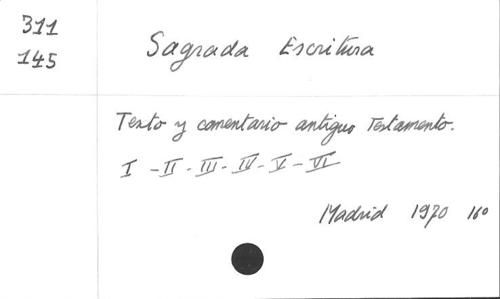 311
145
Sagrada Escritura
Texto y comentario antiguo Testamento.
I - II - III - IV - V - VI
Madrid 1970 16º